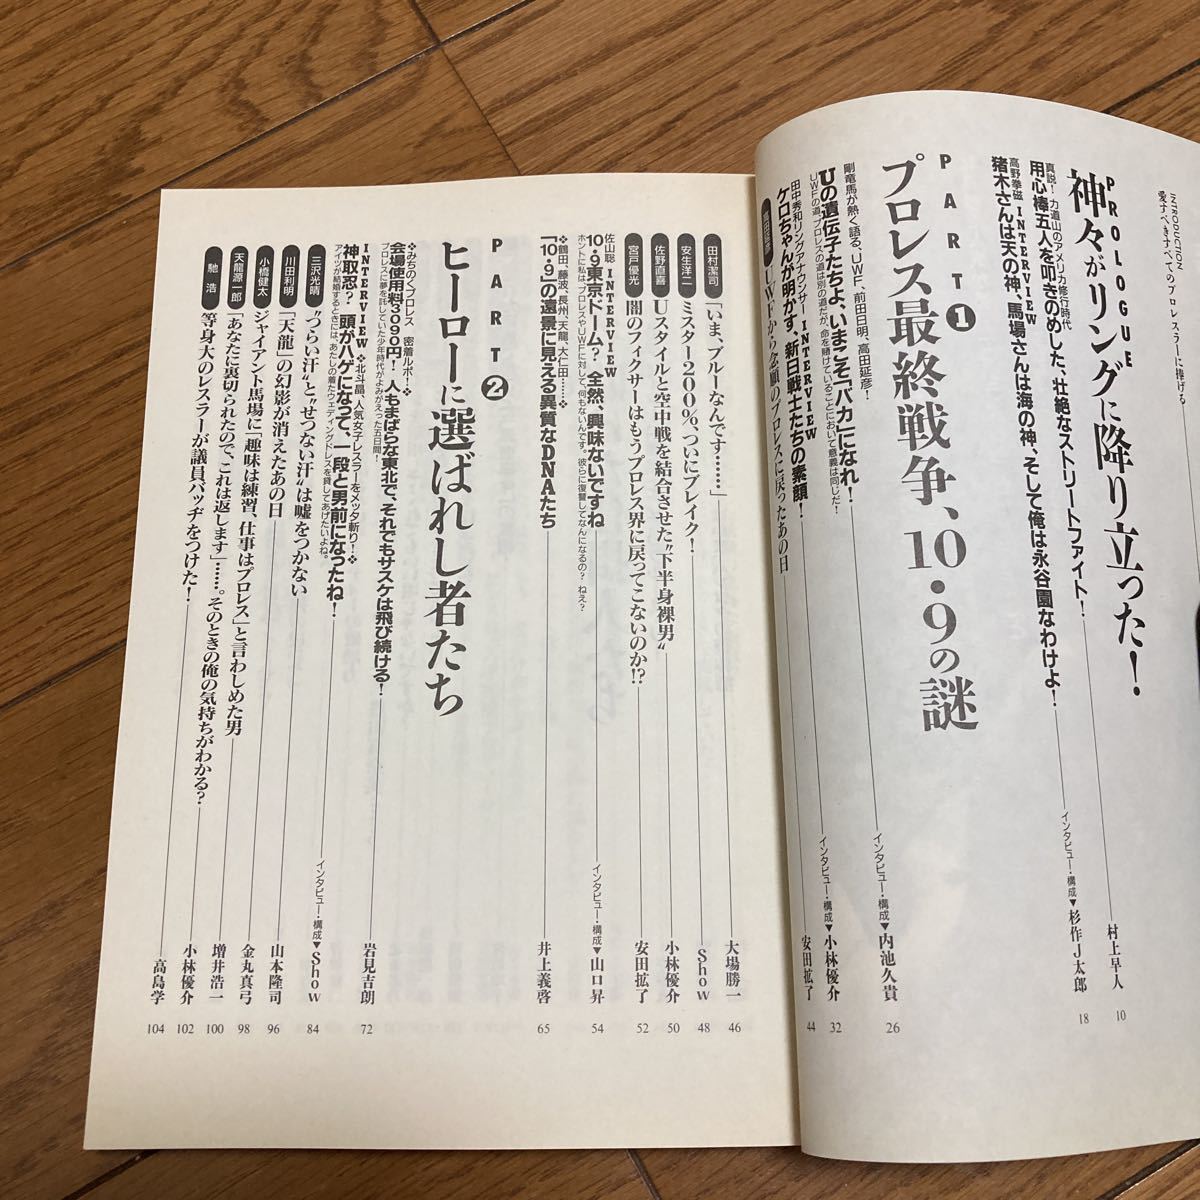 INTRODUCTION
愛すべきすべてのプロレスラーに捧げる
PROLOGUE
神々がリングに降り立った!
真説! 力道山のアメリカ修行時代
用心棒五人を叩きのめした、壮絶なストリートファイト!
村上早人
10
高野拳磁 INTERVIEW
猪木さんは天の神、馬場さんは海の神、そして俺は永谷園なわけよ!
インタビュー・構成▼杉作J太郎
18
PART❶
プロレス最終戦争、10・9の謎
剛竜馬が熱く語る、UWF、前田日明、高田延彦!
Uの遺伝子たちよ、いまこそ「バカ」になれ!
UWFの道、プロレスの道は別の道だが、命を賭けていることにおいて意義は同じだ!
インタビュー・構成▼内池久貴
26
田中秀和リングアナウンサー INTERVIEW
ケロちゃんが明かす、新日戦士たちの素顔!
インタビュー・構成▼小林優介
32
高田延彦
UWFから念願のプロレスに戻ったあの日
安田拡了
44
田村潔司
「いま、ブルーなんです……」
大場勝一
46
安生洋二
ミスター200%、ついにブレイク!
Show
48
佐野直喜
Uスタイルと空中戦を結合させた“下半身裸男”
小林優介
50
宮戸優光
闇のフィクサーはもうプロレス界に戻ってこないのか!?
安田拡了
52
佐山聡 INTERVIEW
10・9東京ドーム? 全然、興味ないですね
ホントに私は、プロレスやUWFに対して、何もないんです。彼らに復讐してなんになるの? ねえ?
インタビュー・構成▼山口昇
54
❖鶴田、藤波、長州、天龍、大仁田……❖
「10・9」の遠景に見える異質なDNAたち
井上義啓
65
PART❷
ヒーローに選ばれし者たち
❖みちのくプロレス 密着ルポ!❖
会場使用料309円! 人もまばらな東北で、それでもサスケは飛び続ける!
プロレスに夢を託していた少年時代がよみがえった五日間!
岩見吉朗
72
INTERVIEW ❖北斗晶、人気女子レスラーをメッタ斬り!❖
神取忍? 頭がハゲになって、一段と男前になったね!
アイツが結婚するときには、あたしの着たウェディングドレスを貸してあげたいよね。
インタビュー・構成▼Show
84
三沢光晴
“つらい汗”と“せつない汗”は嘘をつかない
山本隆司
96
川田利明
「天龍」の幻影が消えたあの日
金丸真弓
98
小橋健太
ジャイアント馬場に「趣味は練習、仕事はプロレス」と言わしめた男
増井浩一
100
天龍源一郎
「あなたに裏切られたので、これは返します」……。そのときの俺の気持ちがわかる?
小林優介
102
馳 浩
等身大のレスラーが議員バッヂをつけた!
高島学
104